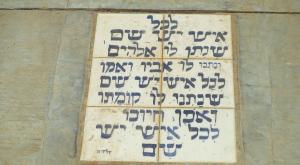 לכל
איש יש שם
שנתן לו אלהים
ונתנו לו אביו ואמו
לכל איש יש שם
שנתנו לו קומתו
ואפן חיוכו
לכל איש יש
שם
זלדה